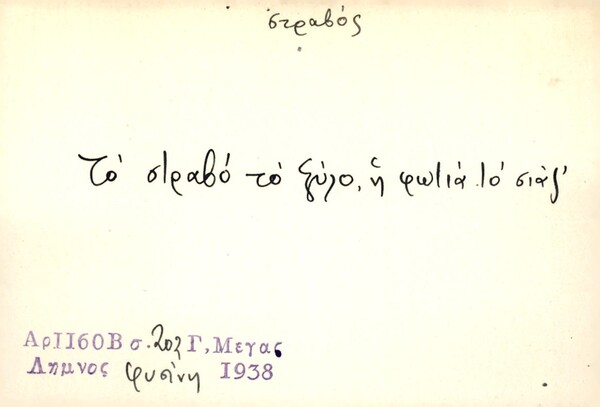 στραβός
Τὸ στραβὸ τὸ ξύλο, ἡ φωτιὰ τὸ σιάζ'
Αρ1160Β σ. 202 Γ, Μεγας
Λημνος Φυσίνη 1938